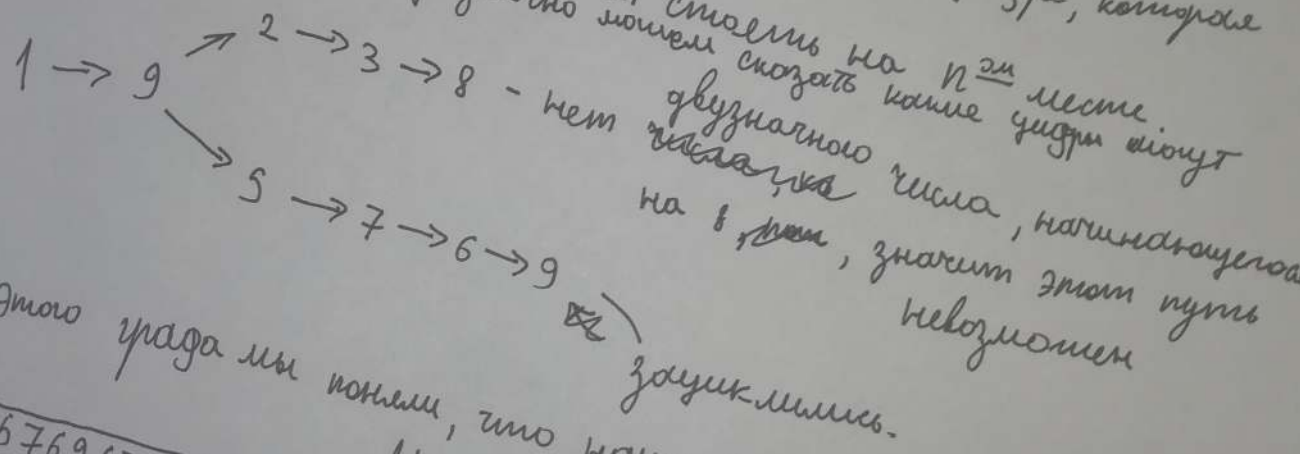 , которая
стоять на n эм месте.
можем сказать какие цифры могут
1 → 9 → 2 → 3 → 8 - нет двузначного числа, начинающегося
на 8, значит этот путь
невозможен
5 → 7 → 6 → 9
зациклились.
этого графа мы поняли, что